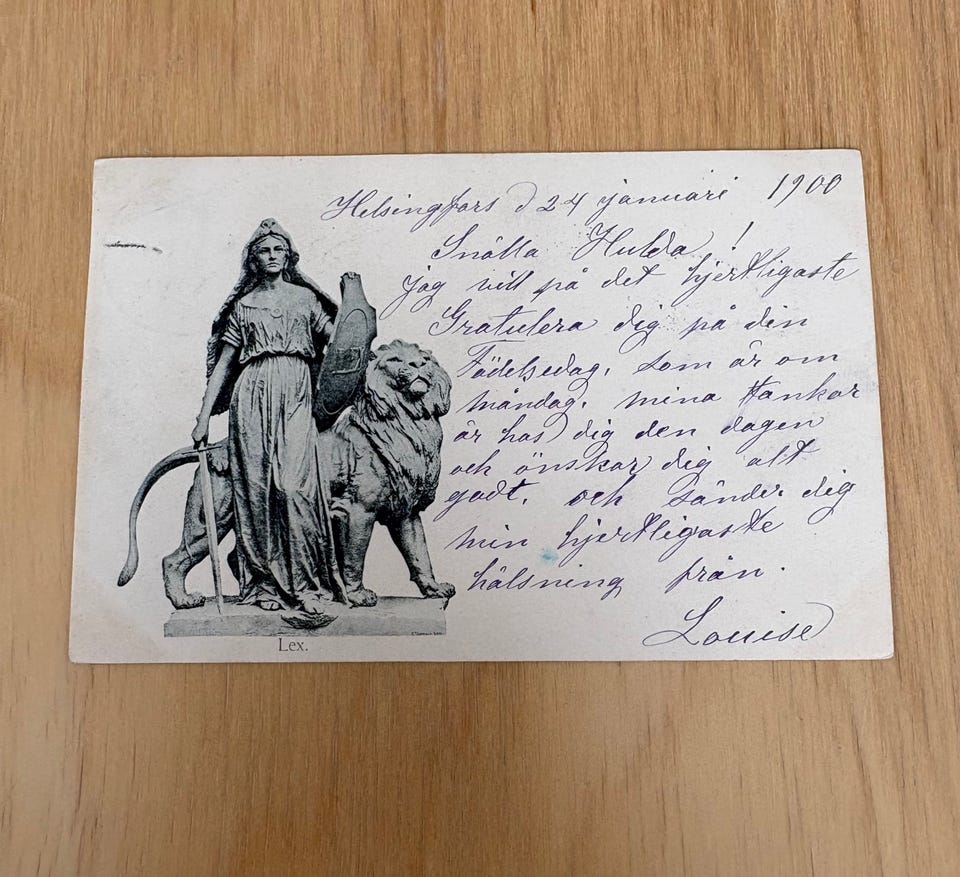 Helsingfors d 24 januari 1900
Snälla Hulda!
jag vill på det hjertligaste
Gratulera dig på din
Födelsedag, som är om
måndag, mina tankar
är hos dig den dagen
och önskar dig alt
godt, och sänder dig
min hjertligaste
hälsning från.
Louise
Lex.